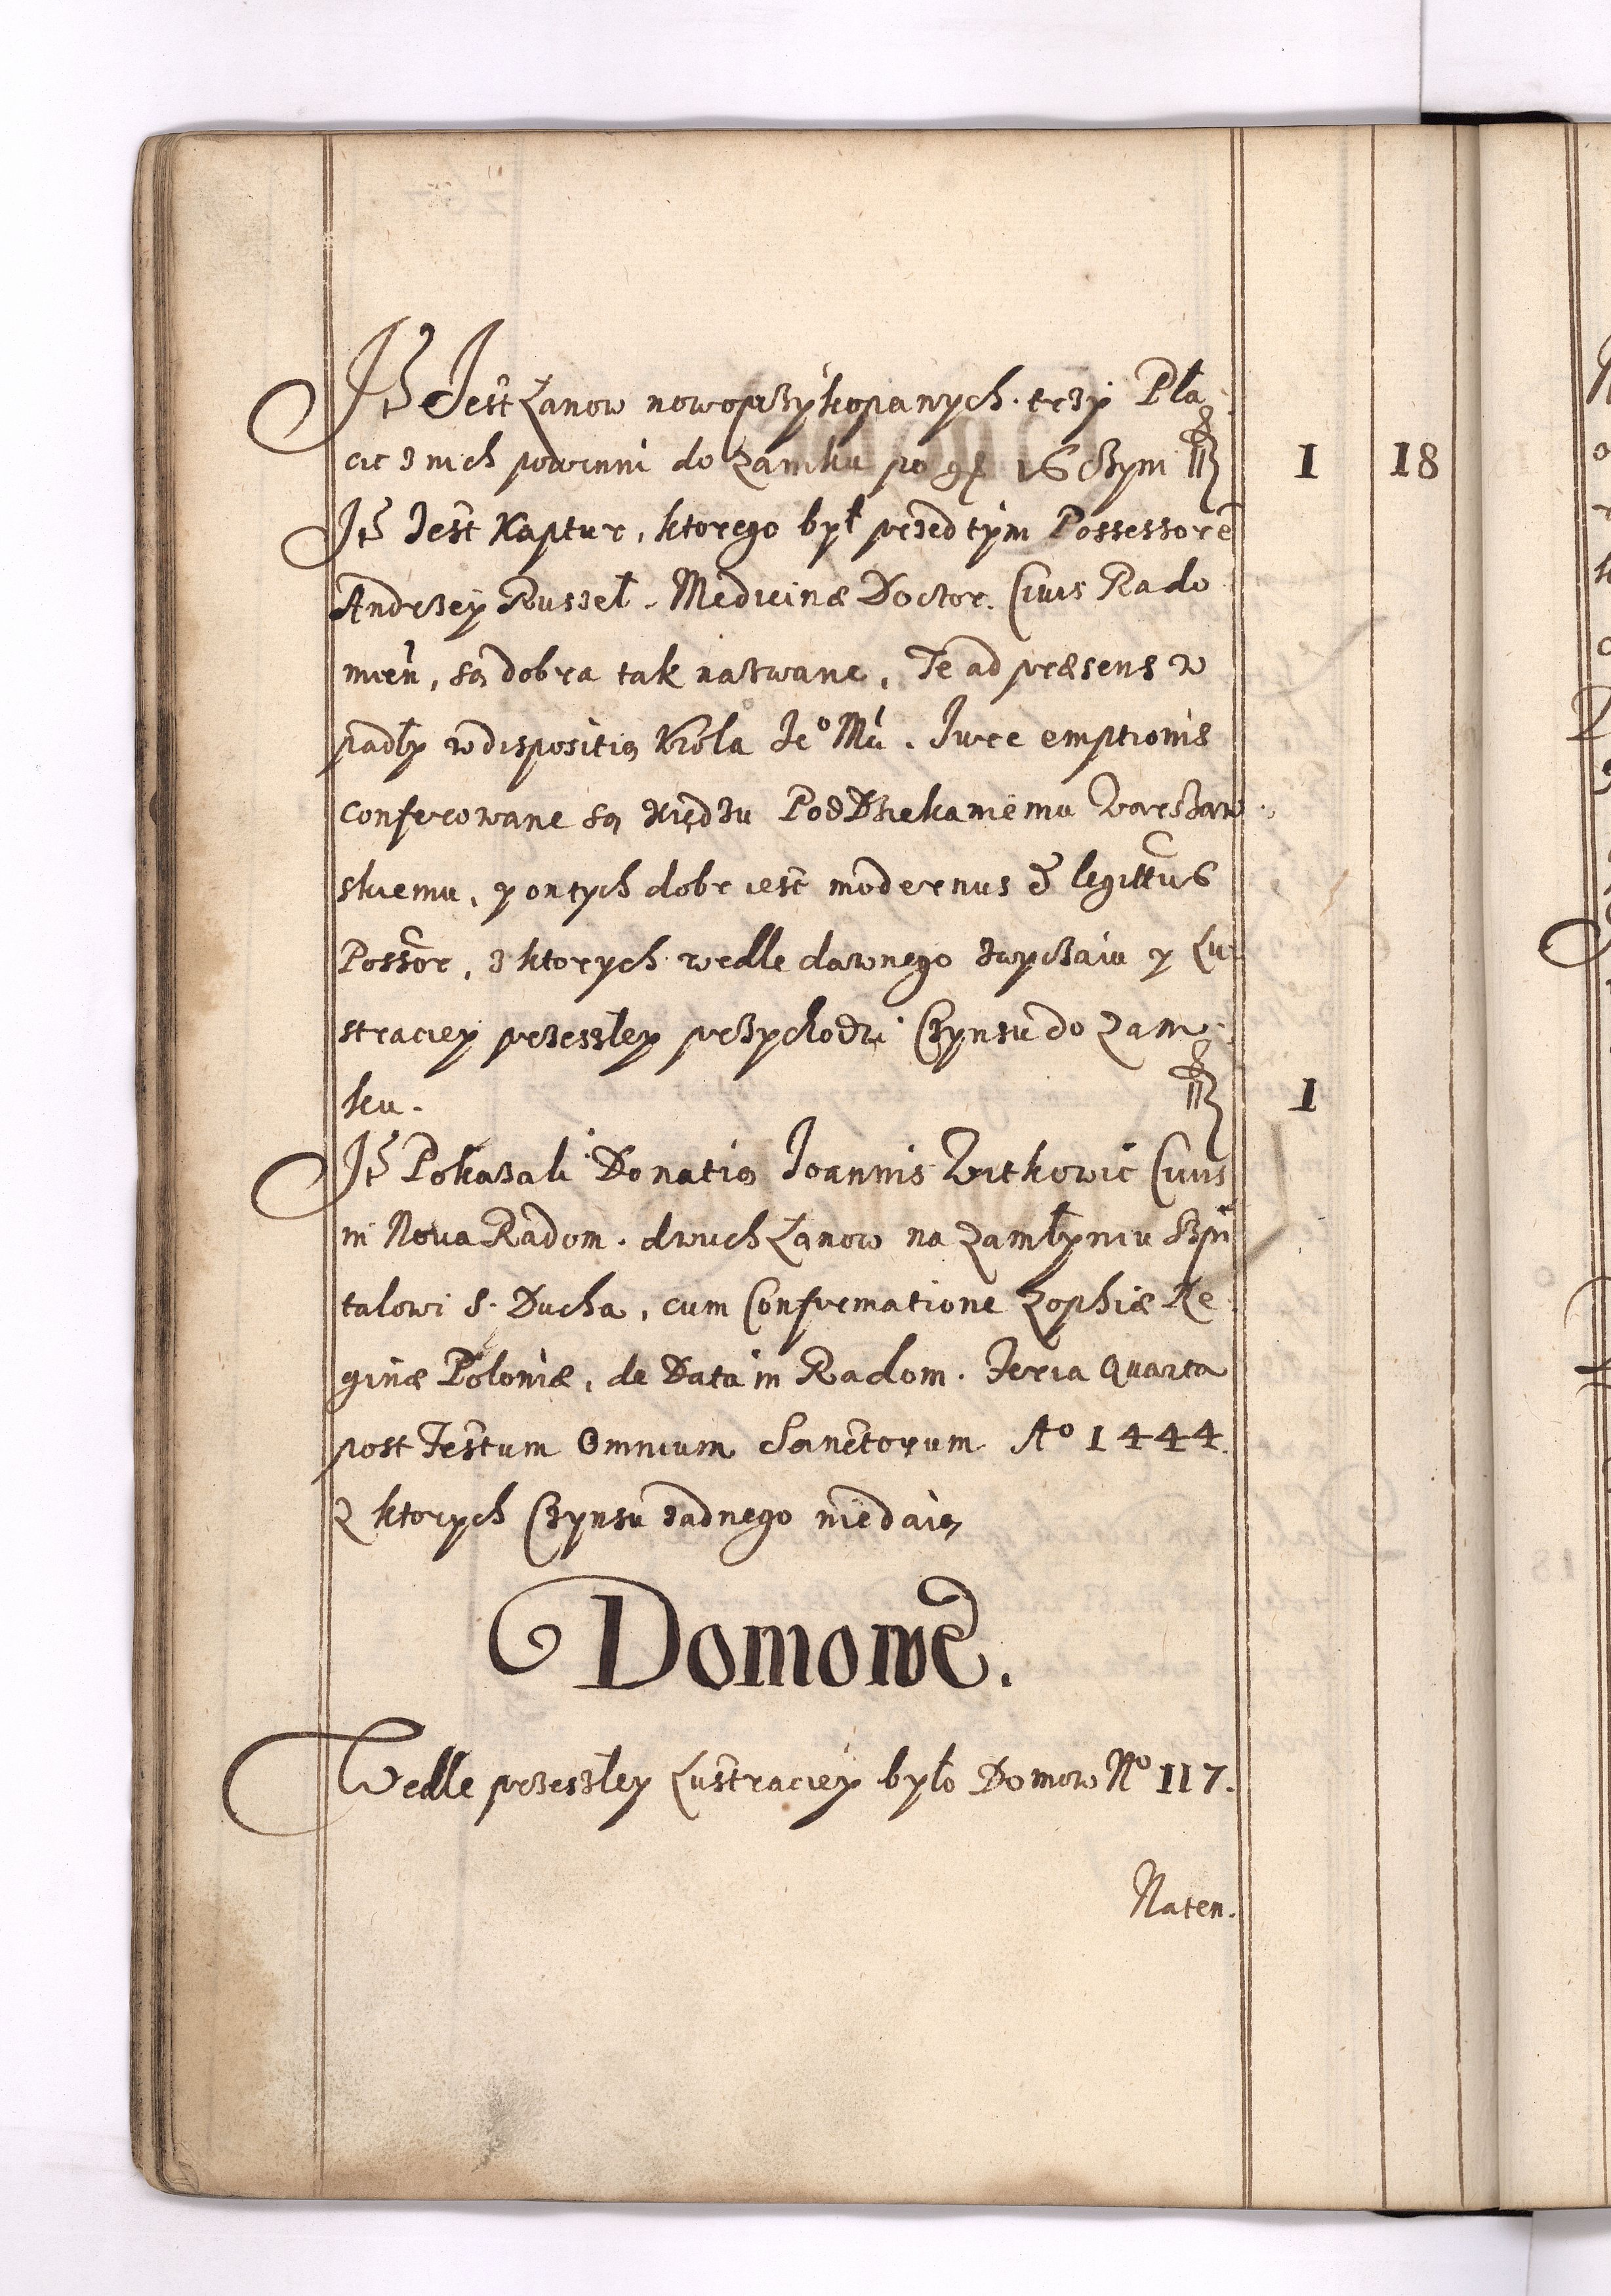 Itẽ Jest Łanow nowoprzykopanych trzy Pła
cic z nich powinni do Zamku po gr 16 czyni fl 1 18
Itẽ Jest Kaptur, ktorego był przedtym Possessorẽ
Andrzey Russel. Medicinæ Doctor. Civis Rado
mień, są dobra tak nazwane, Te ad præsens w
padły w dispositią Króla Jeo Mci. Jure emptionis
conferowane są Xiędzu PodDziekaniemu Warszaw
skiemu, y on tych dobr iest modernus & legittus
Possor, z ktorych wedle dawnego zwyczaiu y Lu
straciey przeszłey przychodzi Czynsu do Zam
ku. fl 1
Itẽ Pokazali Donatią Joannis Witkowic Civis
in Nova Radom. dwuch Łanow na Zamłyniu Szpi
talowi S. Ducha, cum Confirmatione Zophiæ Re
ginæ Poloniæ, de Data in Radom. Feria Quarta
post Festum Omnium Sanctorum Ao 1444.
Z ktorych Czynsu żadnego niedaią
Domowe.
Wedle przeszłey Lustraciey było Domow No 117.
Naten.